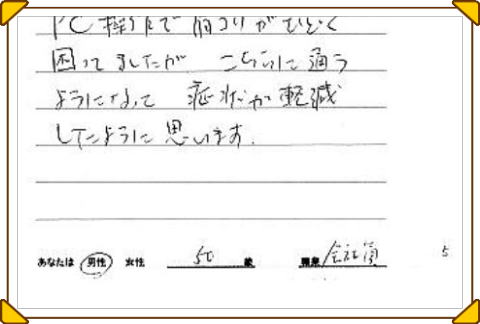 PC操作で肩コリがひどく
困ってましたが こちらに通う
ようになって 症状が軽減
したように思います.
あなたは 男性 女性 50 歳 職業 会社員 5